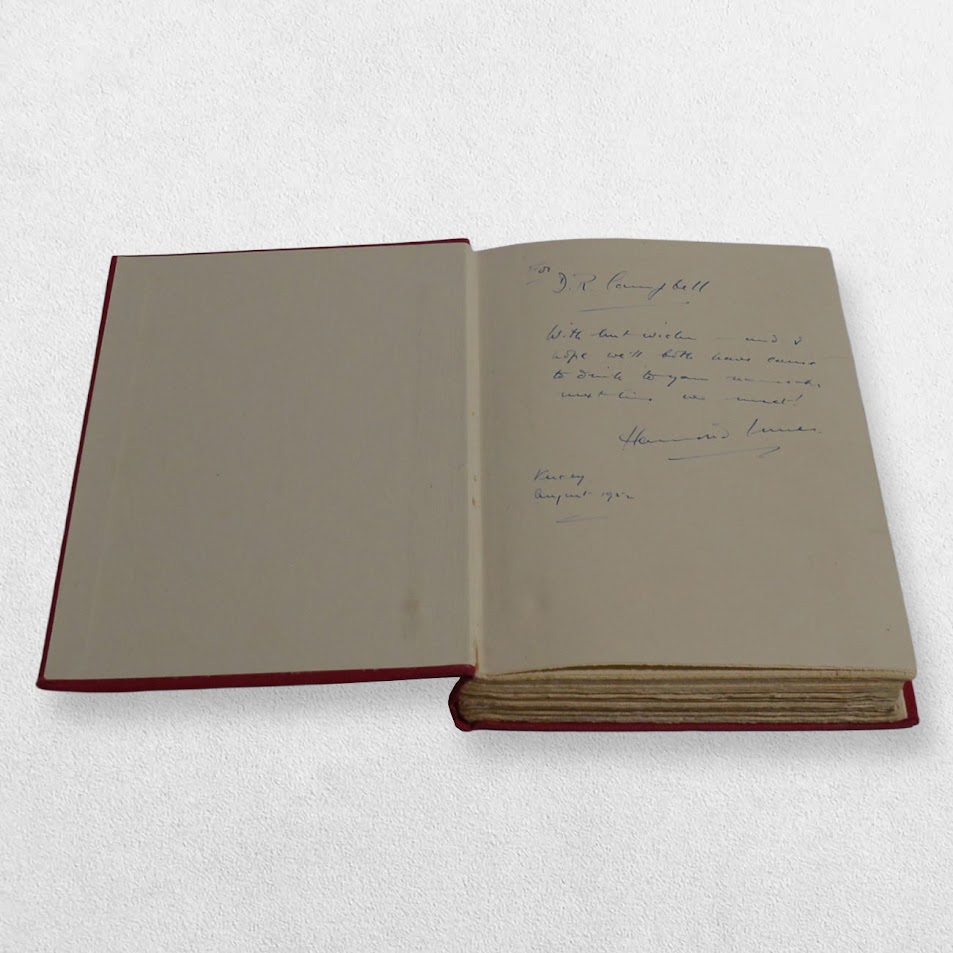 For
D. R. Campbell
With best wishes – and I
hope we'll both have cause
to drink to your
next time we meet!
Hammond Innes
Kersey
August 1952